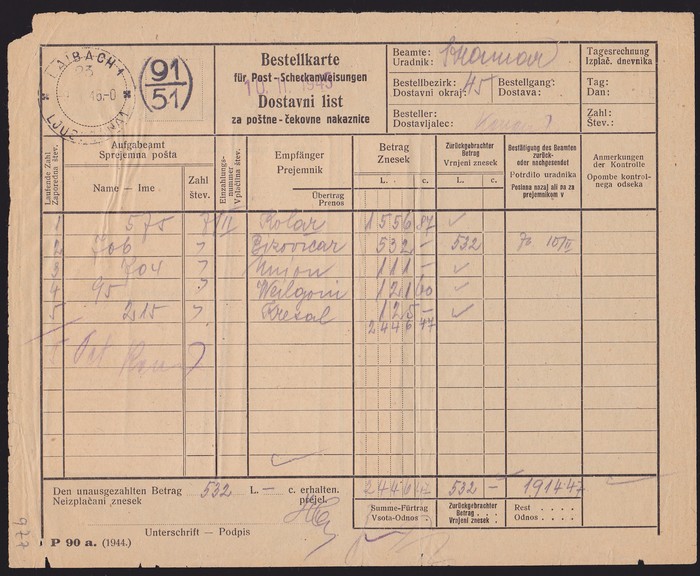 LAIBACH 1
91
51
Bestellkarte
für Post-Scheckanweisungen
10. II. 1945
Dostavni list
za poštne-čekovne nakaznice
Beamte:
Uradnik:
Bestellbezirk: 45 Bestellgang:
Dostavni okraj: Dostava:
Besteller:
Dostavljalec:
Tagesrechnung
Izplač. dnevnika
Tag:
Dan:
Zahl:
Štev.:
Laufende Zahl
Zaporedna štev.
Aufgabeamt
Sprejemna pošta
Name — Ime
Zahl
štev.
Einzahlungs-
nummer
Vplačilna štev.
Empfänger
Prejemnik
Übertrag
Prenos
Betrag
Znesek
L. c.
Zurückgebrachter
Betrag
Vrnjeni znesek
L. c.
Bestätigung des Beamten
zurück-
oder nachgesendet
Potrdilo uradnika
Poslano nazaj ali pa za
prejemnikom v
Anmerkungen
der Kontrolle
Opombe kontrol-
nega odseka
1 575 7/II Kolar 1556 87
2 706 532 — 532 10/II
3 704 Union 111 —
4 95 121 60
5 215 Kresal 125 —
2446 47
Den unausgezahlten Betrag 532 L. — c. erhalten.
Neizplačani znesek prejel.
2446 47 532 — 1914 47
Summe-Fürtrag
Vsota-Odnos
Zurückgebrachter
Betrag
Vrnjeni znesek
Rest
Odnos
Unterschrift — Podpis
P 90 a. (1944.)
977